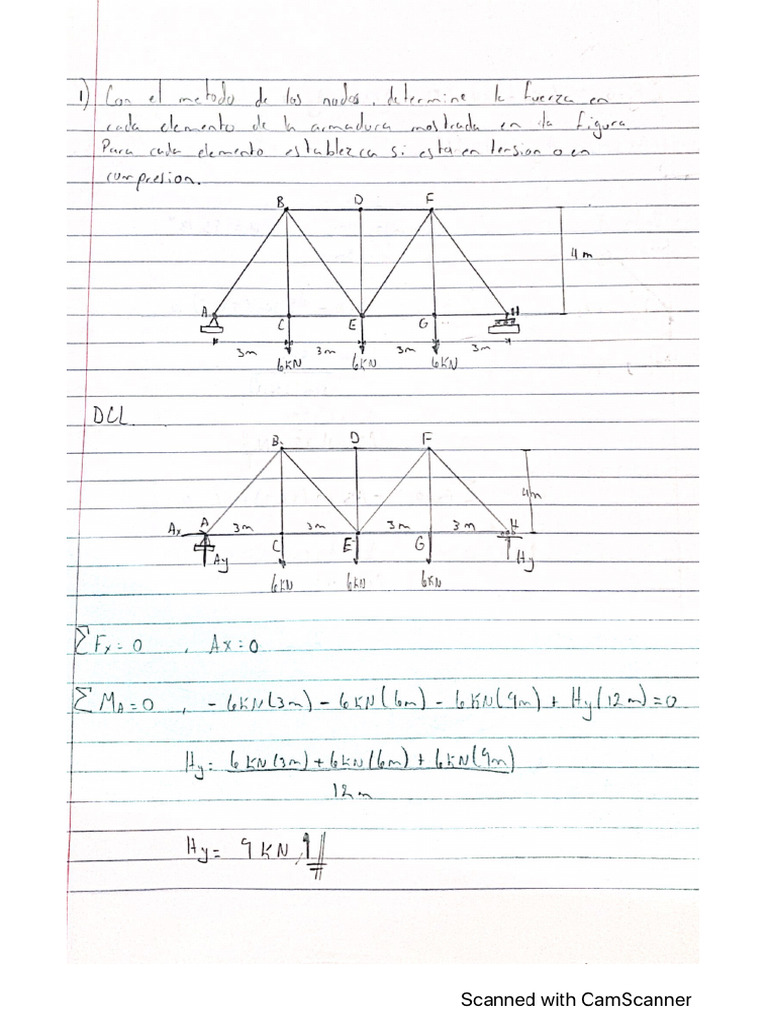 1) Con el metodo de los nodos, determine la fuerza en
cada elemento de la armadura mostrada en la figura.
Para cada elemento establezca si esta en tension o en
compresion.
B D F
4 m
A C E G H
3m 3m 3m 3m
6KN 6KN 6KN
DCL
B D F
4m
Ax A 3m 3m 3m 3m H
Ay C E G Hy
6KN 6KN 6KN
∑Fx=0 , Ax=0
∑MA=0 , -6KN(3m)-6KN(6m)-6KN(9m)+Hy(12m)=0
Hy= 6KN(3m)+6KN(6m)+6KN(9m)
12m
Hy= 9KN,↑
Scanned with CamScanner